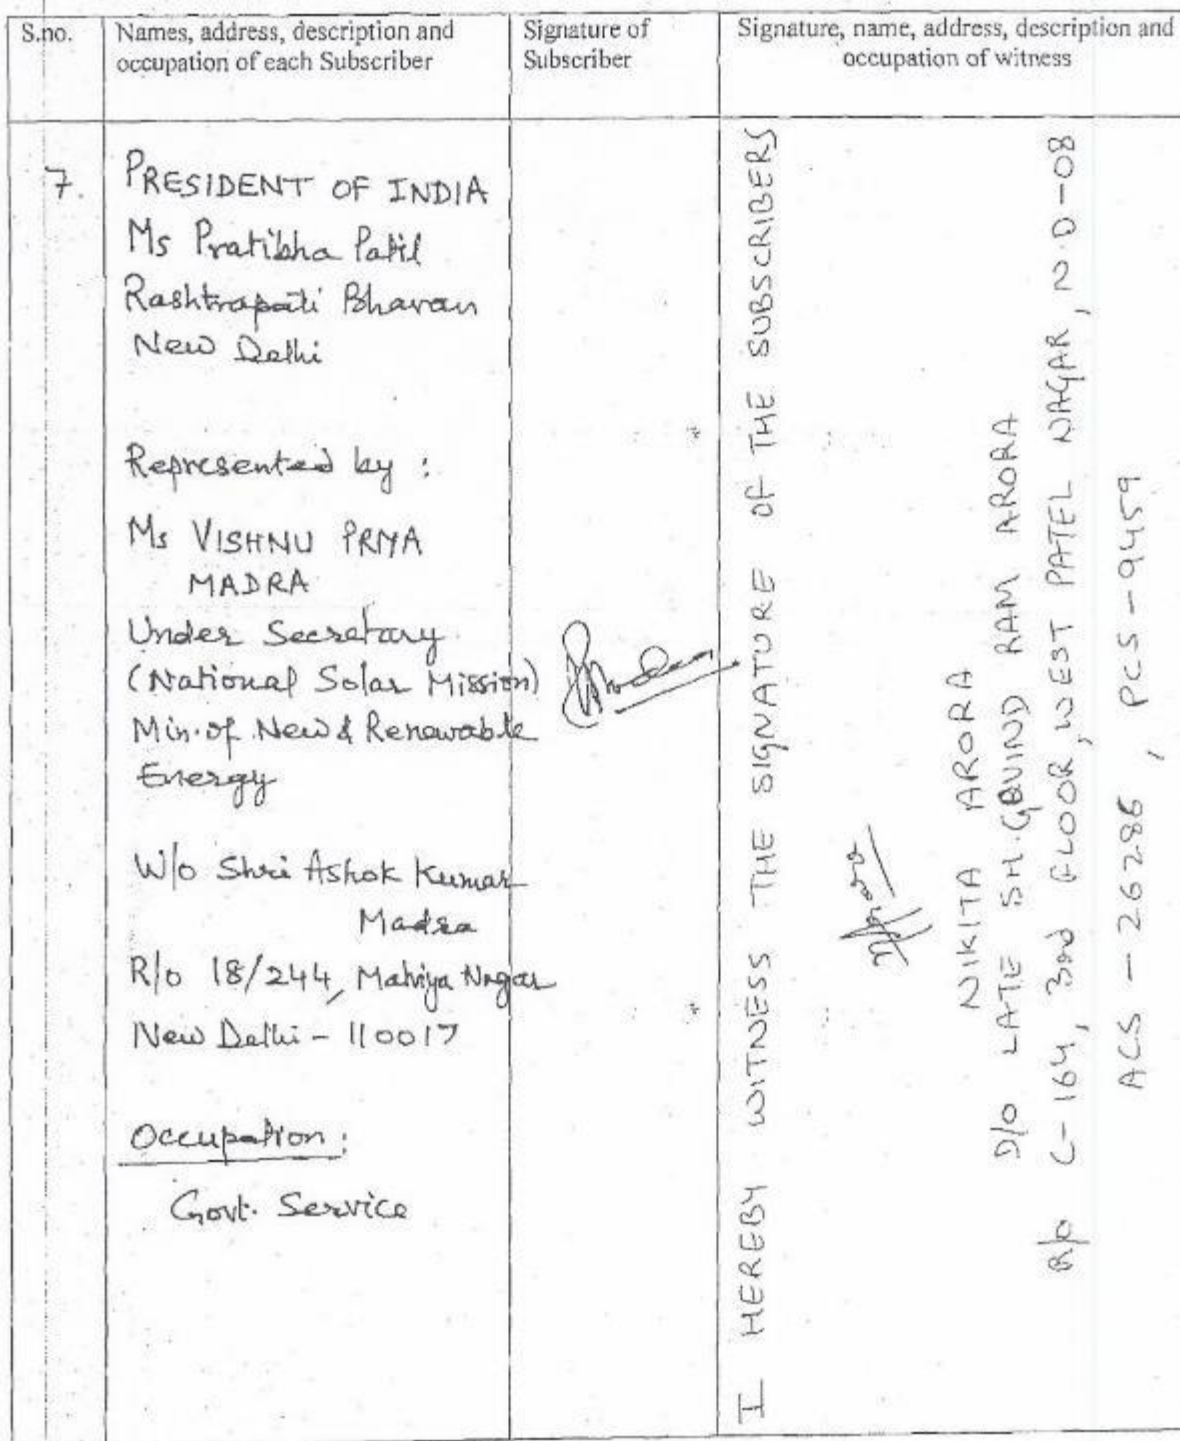 S.no.
Names, address, description and
occupation of each Subscriber
Signature of
Subscriber
Signature, name, address, description and
occupation of witness
7.
PRESIDENT OF INDIA
Ms Pratibha Patil
Rashtrapati Bhavan
New Delhi
Represented by :
Ms VISHNU PRIYA
MADRA
Under Secretary
(National Solar Mission)
Min. of New & Renewable
Energy
W/o Shri Ashok Kumar
Madra
R/o 18/244, Malviya Nagar
New Delhi - 110017
Occupation :
Govt. Service
I HEREBY WITNESS THE SIGNATURE OF THE SUBSCRIBERS
NIKITA ARORA
D/O LATE SH. GOVIND RAM ARORA
R/o C-164, 3rd FLOOR, WEST PATEL NAGAR, N.D-08
ACS - 26286, PCS - 9459